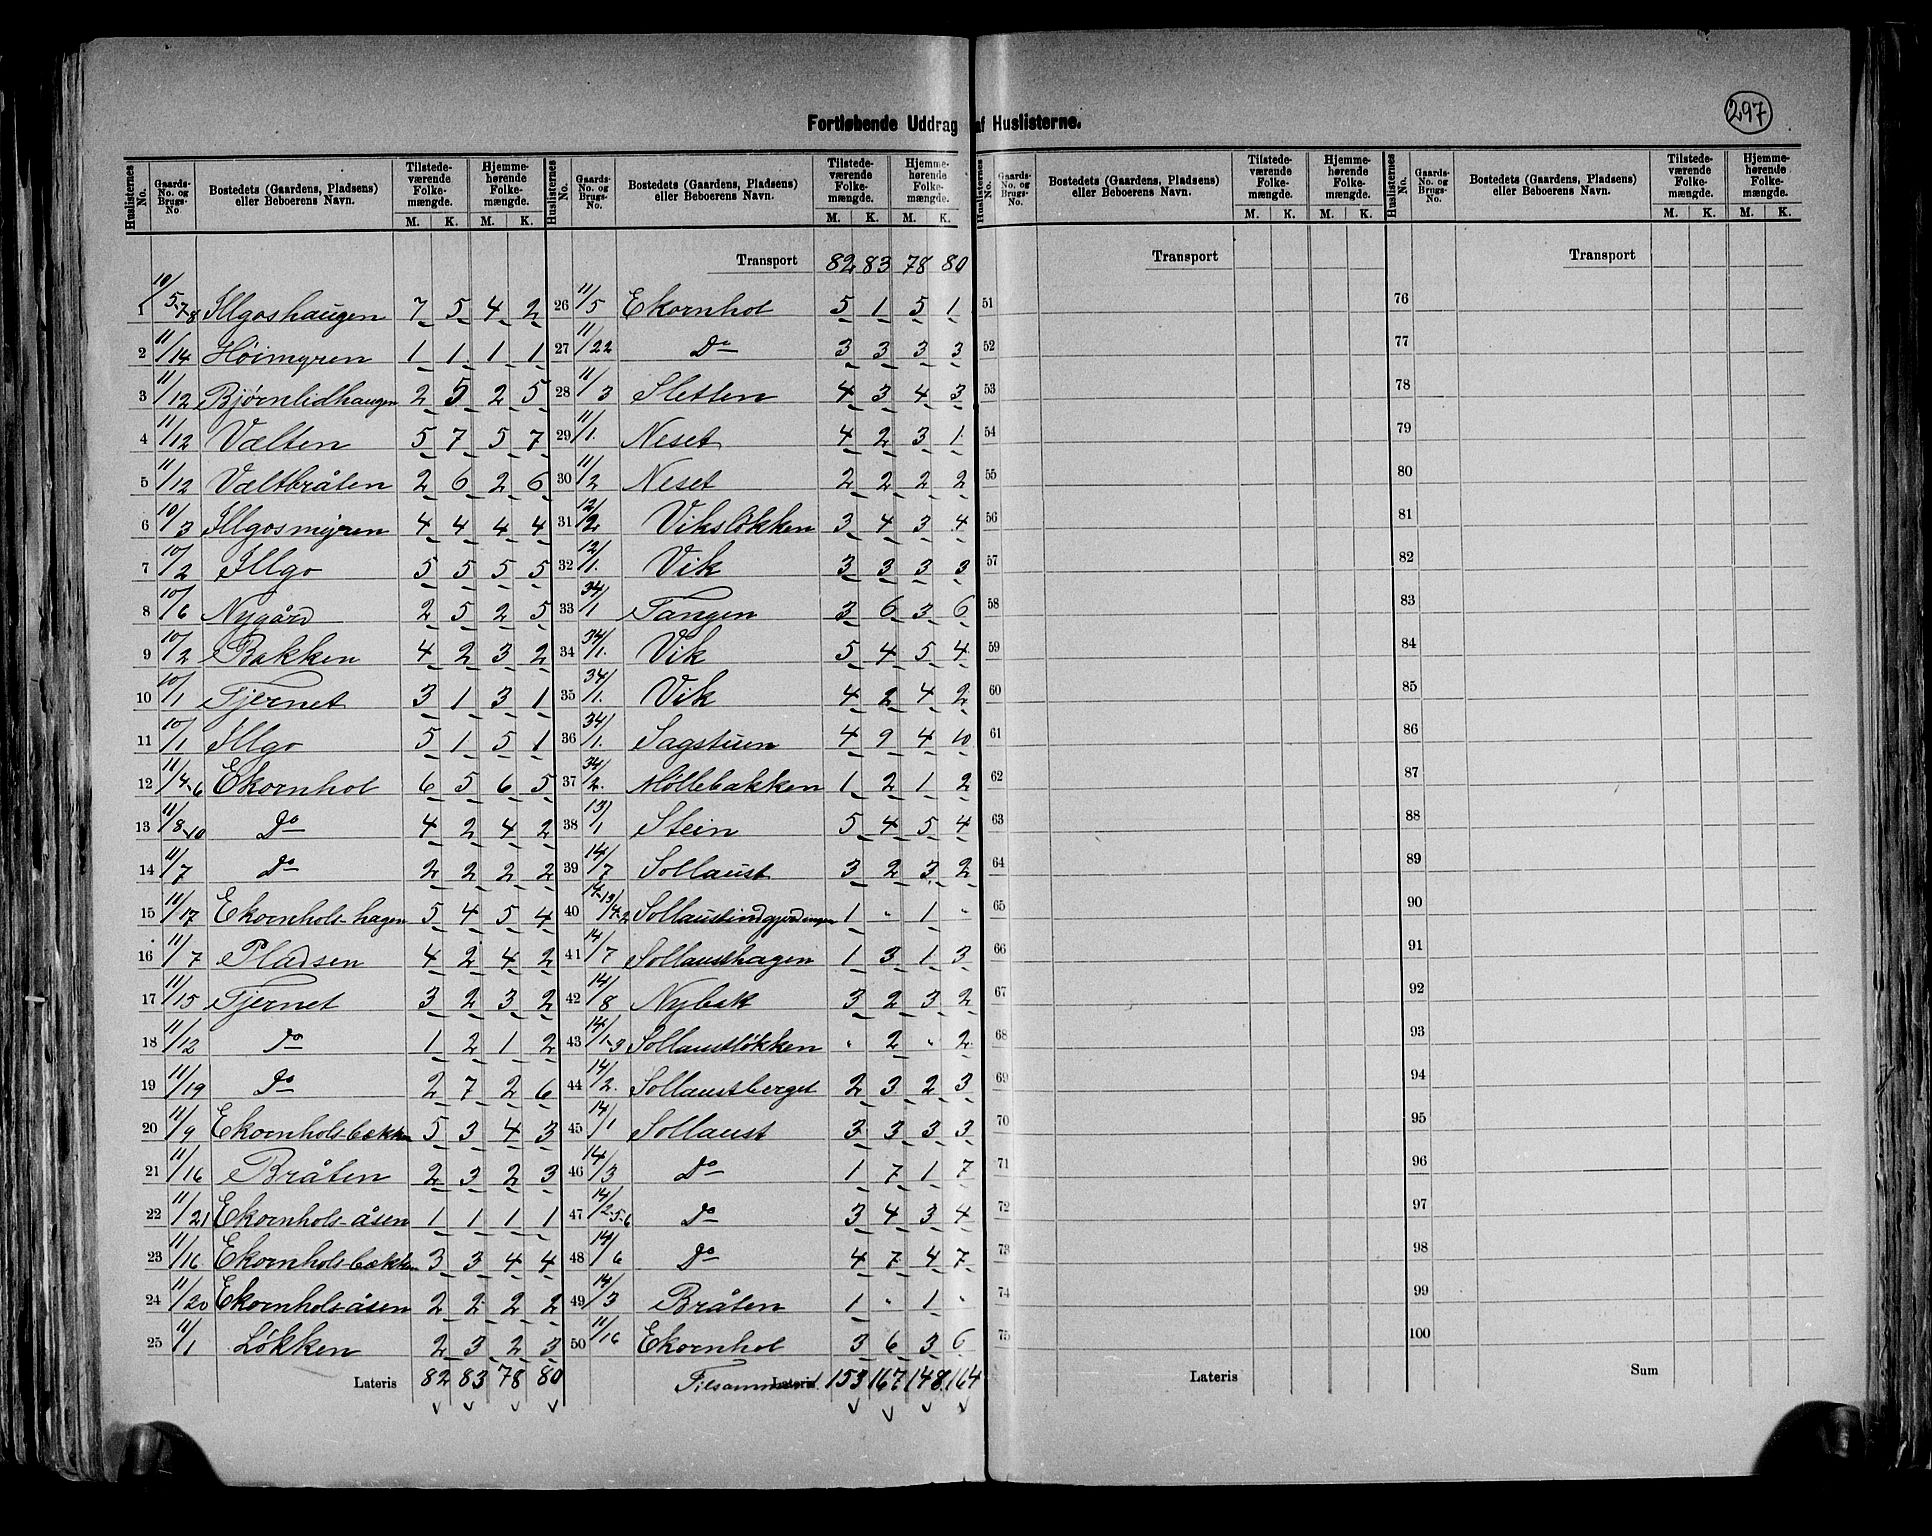 297
Fortløbende Uddrag af Huslisterne.
Huslisternes No. | Gaards-No. og Brugs-No | Bostedets (Gaardens, Pladsens) eller Beboerens Navn. | Tilstedeværende Folkemængde. M. K. | Hjemmehørende Folkemængde. M. K.
1 10/5-7-8 Illgoshaugen 7 5 4 2
2 11/14 Høimyren 1 1 1 1
3 11/12 Bjørnlidhaugen 2 5 2 5
4 11/12 Vælten 5 7 5 7
5 11/12 Væltbråten 2 6 2 6
6 10/3 Illgosmyren 4 4 4 4
7 10/2 Illgo 5 5 5 5
8 10/6 Nygård 2 5 2 5
9 10/2 Bakken 4 2 3 2
10 10/1 Tjernet 3 1 3 1
11 10/1 Illgo 5 1 5 1
12 11/4-6 Ekornhol 6 5 6 5
13 11/8-10 Do 4 2 4 2
14 11/7 Do 2 2 2 2
15 11/17 Ekornhols-hagen 5 4 5 4
16 11/7 Pladsen 4 2 4 2
17 11/15 Tjernet 3 2 3 2
18 11/12 Do 1 2 1 2
19 11/19 Do 2 7 2 6
20 11/9 Ekornhols-bækken 5 3 4 3
21 11/16 Bråten 2 3 2 3
22 11/21 Ekornhols-åsen 1 1 1 1
23 11/16 Ekornhols-bækken 3 3 4 4
24 11/20 Ekornhols-åsen 2 2 2 2
25 11/1 Løkken 2 3 2 3
Lateris 82 83 78 80
Huslisternes No. | Gaards-No. og Brugs-No. | Bostedets (Gaardens, Pladsens) eller Beboerens Navn. | Tilstedeværende Folkemængde. M. K. | Hjemmehørende Folkemængde. M. K.
Transport 82 83 78 80
26 11/5 Ekornhol 5 1 5 1
27 11/22 Do 3 3 3 3
28 11/3 Sletten 4 3 4 3
29 11/1. Neset 4 2 3 1
30 11/2 Neset 2 2 2 2
31 12/2 Viksløkken 3 4 3 4
32 12/1. Vik 3 3 3 3
33 34/1 Tangen 3 6 3 6
34 34/1. Vik 5 4 5 4
35 34/1. Vik 4 2 4 2
36 34/1. Sagstuen 4 9 4 10
37 34/2. Møllebakken 1 2 1 2
38 13/1 Stein 5 4 5 4
39 14/7 Sollaust 3 2 3 2
40 Sollaustindgjerdingen 1 " 1 "
41 14/7 Sollausthagen 1 3 1 3
42 14/8 Nybak 3 2 3 2
43 14/1-3 Sollaustløkken " 2 " 2
44 14/2. Sollaustberget 2 3 2 3
45 14/1 Sollaust 3 3 3 3
46 14/3 Do 1 7 1 7
47 14/2-5-6 Do 3 4 3 4
48 14/6 Do 4 7 4 7
49 14/3 Bråten 1 " 1 "
50 11/16 Ekornhol 3 6 3 6
Lateris Tilsammen 153 167 148 164
Huslisternes No. | Gaards-No. og Brugs-No. | Bostedets (Gaardens, Pladsens) eller Beboerens Navn. | Tilstedeværende Folkemængde. M. K. | Hjemmehørende Folkemængde. M. K.
Transport
51
52
53
54
55
56
57
58
59
60
61
62
63
64
65
66
67
68
69
70
71
72
73
74
75
Lateris
Huslisternes No. | Gaards-No. og Brugs-No. | Bostedets (Gaardens, Pladsens) eller Beboerens Navn. | Tilstedeværende Folkemængde. M. K. | Hjemmehørende Folkemængde. M. K.
Transport
76
77
78
79
80
81
82
83
84
85
86
87
88
89
90
91
92
93
94
95
96
97
98
99
100
Sum